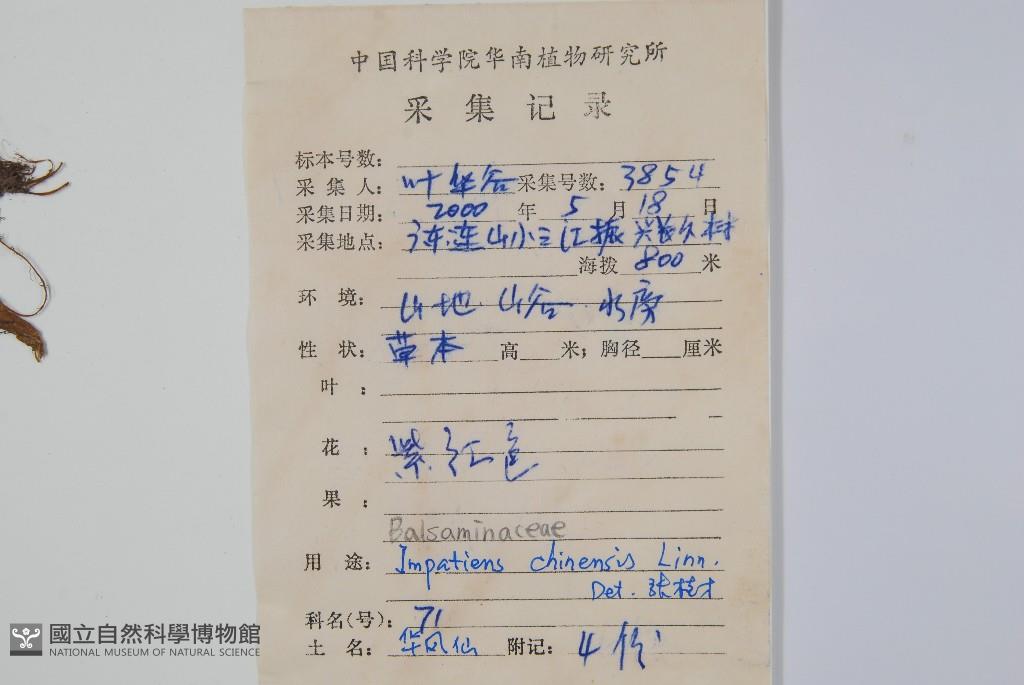 中国科学院华南植物研究所
采集记录
标本号数：
采集人： 叶华谷 采集号数： 3854
采集日期： 2000 年 5 月 18 日
采集地点： 连山小三江振兴
海拨 800 米
环境： 山地 山谷 水旁
性状： 草本 高 米；胸径 厘米
叶：
花： 紫红色
果：
Balsaminaceae
用途： Impatiens chinensis Linn.
Det. 张桂才
科名(号)： 71
土名： 华凤仙 附记： 4份
國立自然科學博物館
NATIONAL MUSEUM OF NATURAL SCIENCE